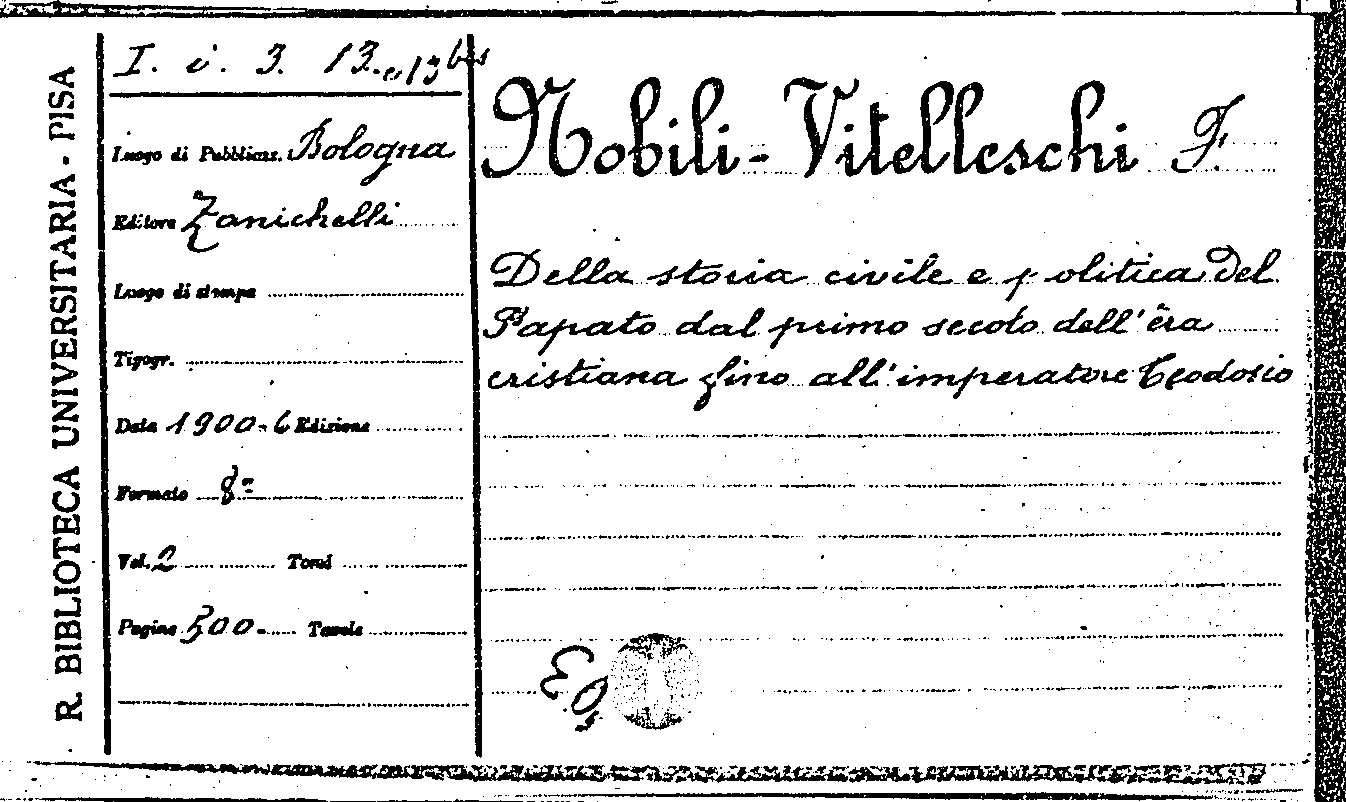 R. BIBLIOTECA UNIVERSITARIA - PISA
I. i. 3. 13. e 13 bis
Luogo di Pubblicaz. Bologna
Editore Zanichelli
Luogo di stampa
Tipogr.
Data 1900-6 Edizione
Formato 8º
Vol. 2 Tomi
Pagine 500- Tavole
Nobili-Vitelleschi F.
Della storia civile e politica del
Papato dal primo secolo dell'êra
cristiana fino all'imperatore Teodosio